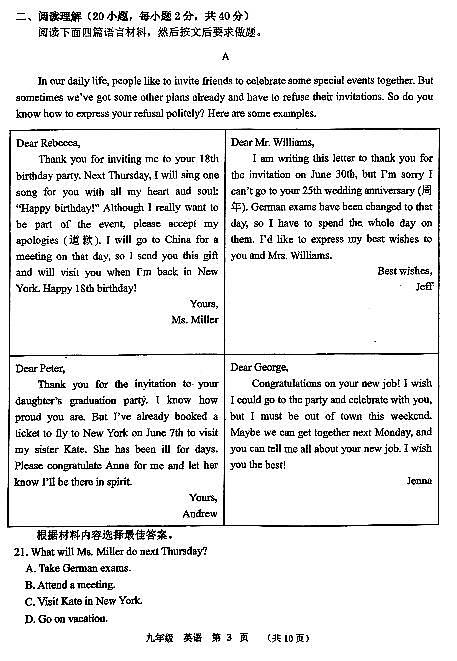 二、阅读理解（20小题，每小题2分，共40分）
阅读下面四篇语言材料，然后按文后要求做题。
A
In our daily life, people like to invite friends to celebrate some special events together. But
sometimes we've got some other plans already and have to refuse their invitations. So do you
know how to express your refusal politely? Here are some examples.
Dear Rebecca,
Thank you for inviting me to your 18th
birthday party. Next Thursday, I will sing one
song for you with all my heart and soul:
"Happy birthday!" Although I really want to
be part of the event, please accept my
apologies (道歉). I will go to China for a
meeting on that day, so I send you this gift
and will visit you when I'm back in New
York. Happy 18th birthday!
Yours,
Ms. Miller
Dear Mr. Williams,
I am writing this letter to thank you for
the invitation on June 30th, but I'm sorry I
can't go to your 25th wedding anniversary (周
年). German exams have been changed to that
day, so I have to spend the whole day on
them. I'd like to express my best wishes to
you and Mrs. Williams.
Best wishes,
Jeff
Dear Peter,
Thank you for the invitation to your
daughter's graduation party. I know how
proud you are. But I've already booked a
ticket to fly to New York on June 7th to visit
my sister Kate. She has been ill for days.
Please congratulate Anna for me and let her
know I'll be there in spirit.
Yours,
Andrew
Dear George,
Congratulations on your new job! I wish
I could go to the party and celebrate with you,
but I must be out of town this weekend.
Maybe we can get together next Monday, and
you can tell me all about your new job. I wish
you the best!
Jenna
根据材料内容选择最佳答案。
21. What will Ms. Miller do next Thursday?
A. Take German exams.
B. Attend a meeting.
C. Visit Kate in New York.
D. Go on vacation.
九年级 英语 第 3 页 （共10页）